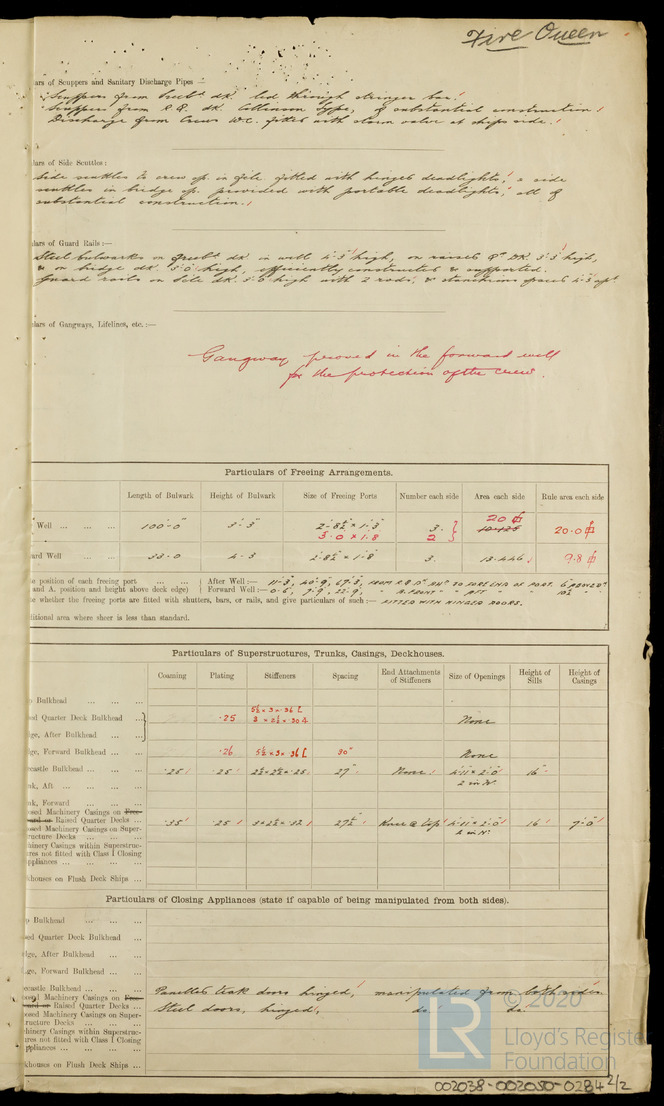 Fire Queen
ars of Scuppers and Sanitary Discharge Pipes —
Scuppers from freebd dk. led through stringer bar.
Scuppers from R.Q. dk. type, of substantial construction
Discharge from Crews W.C. fitted with storm valve at ships side.
lars of Side Scuttles :
Side scuttles to crew sp. in f'cle fitted with hinged deadlights, & side
scuttles in bridge sp. provided with portable deadlights, all of
substantial construction.
lars of Guard Rails :—
Steel bulwarks on freebd dk. in well 4'.3" high, on raised Qr DK. 3'.3" high,
& on bridge dk. 3'.0" high, efficiently constructed & supported.
Guard rails on f'cle dk. 3'.0" high with 2 rods, & stanchions spaced 4'.3" apt
lars of Gangways, Lifelines, etc. :—
Gangway in the forward well
for the protection of the crew.
Particulars of Freeing Arrangements.
Length of Bulwark Height of Bulwark Size of Freeing Ports Number each side Area each side Rule area each side
Well ... ... ... 100'-0" 3'-3" 2'-8½" × 1'-3" 3. 20
3.0 × 1.8 2 20.0
ard Well ... ... 33.0 4-3 2'.8½" × 1'.8 3. 13.446 9.8
e position of each freeing port ... ... After Well :— 11'-3", 40'-9", 69'-3", FROM R.Q. DK BHD TO FORE END OF PORT. 6" ABOVE DK
and A. position and height above deck edge) Forward Well :— 0'-6", 9'-9", 22'-9", " " AFT " " 10½ "
e whether the freeing ports are fitted with shutters, bars, or rails, and give particulars of such :— FITTED WITH HINGED DOORS.
ditional area where sheer is less than standard.
Particulars of Superstructures, Trunks, Casings, Deckhouses.
Coaming Plating Stiffeners Spacing End Attachments of Stiffeners Size of Openings Height of Sills Height of Casings
p Bulkhead ... ... ...
ed Quarter Deck Bulkhead ... .25 5½ × 3 × .36 [
3 × 2½ × .30 None
ge, After Bulkhead ... ...
ge, Forward Bulkhead ... ... .26 5½ × 3 × 36 [ 30" None
ecastle Bulkhead ... ... ... .25 .25 2½ × 2½ × .25 27" None 4'-11" × 2'-0" 16"
2 in N.
nk, Aft ... ... ... ...
nk, Forward ... ... ...
osed Machinery Casings on Free-
ard or Raised Quarter Decks ... .35 .25 3 × 2½ × .32 27½ Knee @ top 4'-11" × 2'-0" 16" 7'-0"
osed Machinery Casings on Super- 2 in N.
tructure Decks ... ... ...
hinery Casings within Superstruc-
ures not fitted with Class I Closing
ppliances ... ... ... ...
khouses on Flush Deck Ships ...
Particulars of Closing Appliances (state if capable of being manipulated from both sides).
p Bulkhead ... ... ...
ed Quarter Deck Bulkhead ...
ge, After Bulkhead ... ...
ge, Forward Bulkhead ... ...
ecastle Bulkhead ... ... ... Panelled teak doors hinged, manipulated from both sides.
osed Machinery Casings on Free-
ard or Raised Quarter Decks ... Steel doors, hinged, do. do.
osed Machinery Casings on Super-
ructure Decks ... ... ...
hinery Casings within Superstruc-
ures not fitted with Class I Closing
ppliances ... ... ... ...
khouses on Flush Deck Ships ...
LR © 2020
Lloyd's Register
Foundation
002038-002050-0284 2/2